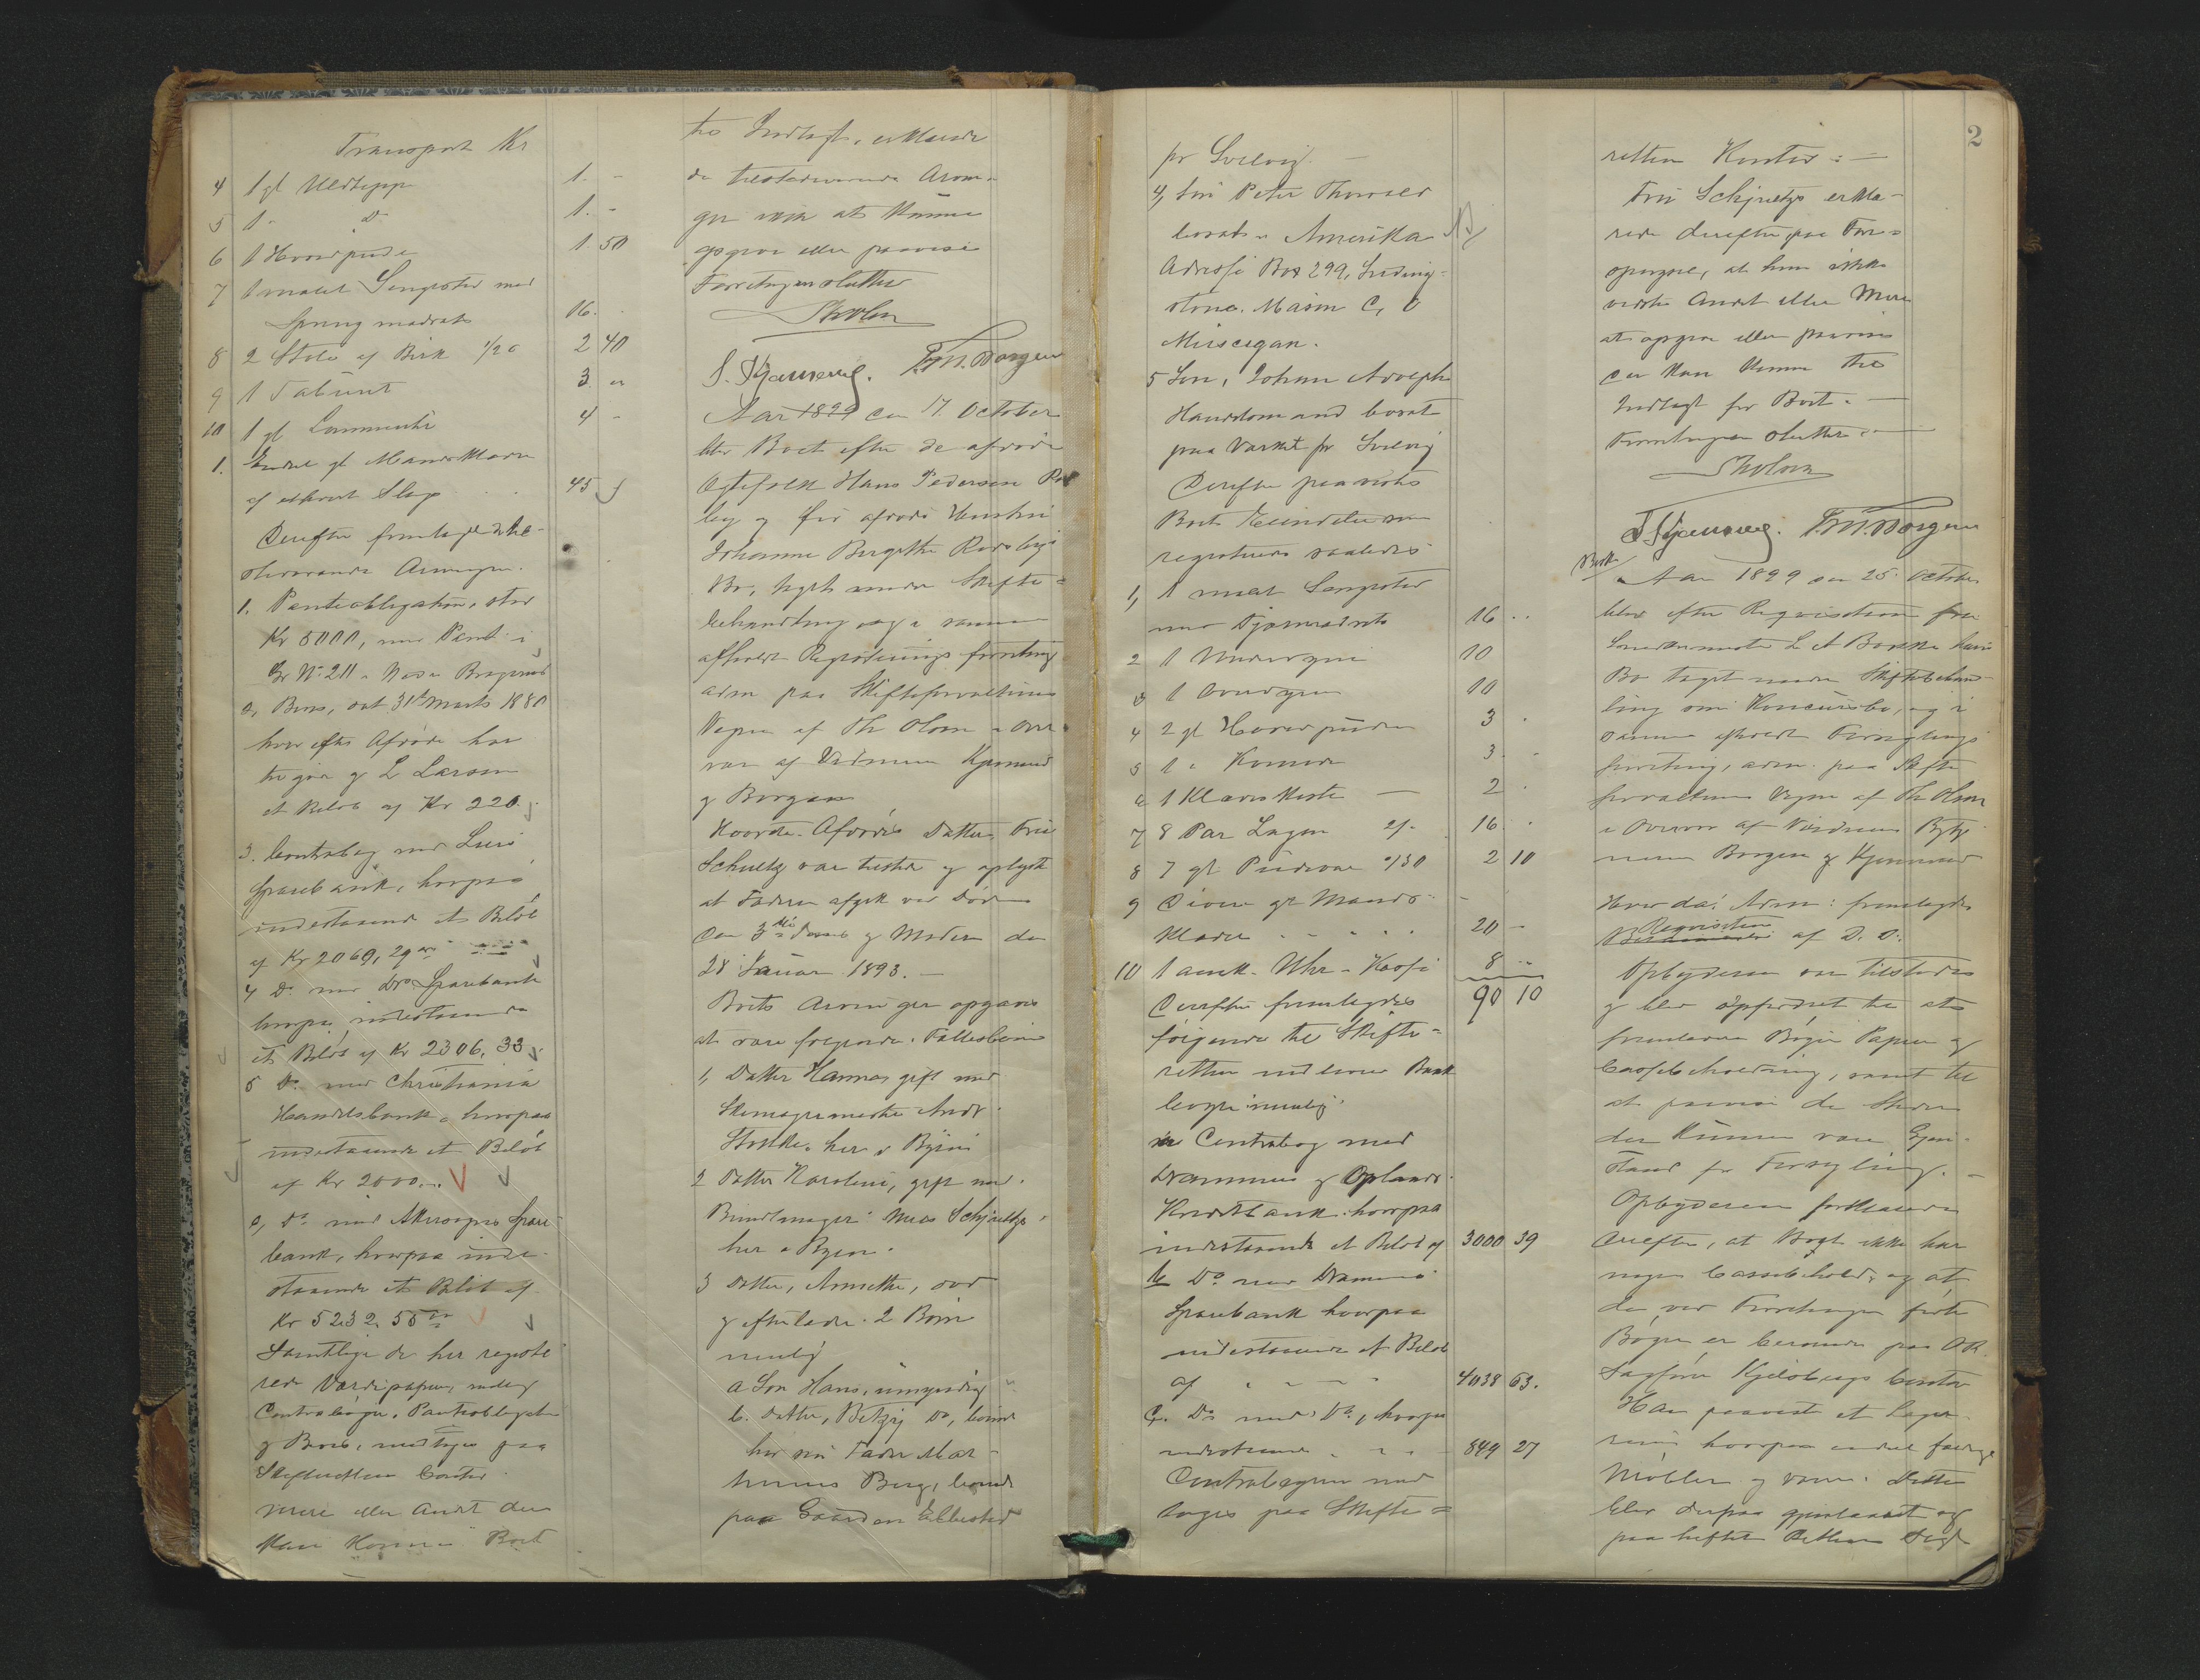 Transport Kr
4 1 gl Uldteppe 1. -
5 1 - Do 1. -
6 1 Hovedpude 1. 50
7 1 malet Sengested med
Springmadrats 16.
8 2 Stole af Birk 1/20 2 40
9 1 Taburet 3.
10 1 gl Lommeuhr 4 -
1. Endel gl Mandsklæder
af ethvert Slags 45
Derefter fremlagde de til-
stedeværende Arvinger.
1. Panteobligation, stor
Kr 8000, med Pant i
Gr No 211 Bragernes
2, Bevis, dat 31te Marts 1880
hvorefter Afdøde har
tilgode L Larsen
et Beløb af Kr 220.
3. Contrabog med Liers
Sparebank, hvorpaa
indestaaende et Beløb
af Kr 2069, 29
4 Do med Drs Sparebank
hvorpaa indestaaende
et Beløb af Kr 2306, 33
5 Do med Christiania
Handelsbank, hvorpaa
indestaaende et Beløb
af Kr 2000.
6, Do med Akersogns Spare-
bank, hvorpaa inde-
staaende et Beløb af
Kr 5232, 55
Samtlige de her registe-
rede Værdipapirer, nemlig
Contrabøger, Panteobligation
og Bevis, medtoges paa
Skifterettens Contor.
mere eller Andet der
kan komme Boet
til Indtægt, erklærede
de tilstedeværende Arvin-
ger ikke at kunne
opgive eller paavise
Forretningen sluttet
Th Olsen
S. Kjemerud. F. M. Borgen
Aar 1899 den 17. October
blev Boet efter de afdøde
Ægtefolk Hans Pedersen
og før afdøde Hustru
Johanne Birgithe
Bo, taget under Skifte-
behandling og i samme
afholdt Registreringsforretning
adm paa Skifteforvalterens
Vegne af Th Olsen i Over-
vær af Vidnerne Kjemerud
og Borgen
Hvorda Afdødes Datter, Fru
Schjeltz var tilstede og oplyste
at Faderen afgik ved Døden
den 3die dennes og Moderen den
28 Januar 1893. -
Boets Arvinger opgaves
at være følgende Fællesbørn
1, Datter Hanna, gift med
Skomagermester Andr.
her i Byen
2 Datter Karoline, gift med
Bundtmager Schjeltz
her i Byen.
3 Datter, Annette, død
og efterlader 2 Børn
nemlig
a Søn Hans, umyndig
b. Datter, Betzy Do, boende
hos sin Fader Mar-
thinius Berg, boende
paa Gaarden Ebbestad
2
pr Svelvig. -
4, Søn Peter Thorvald
bosat i Amerika
Adresse Box 299, Living-
stone. Mason C, O
Miscegan.
5 Søn, Johan Adolph
Handelsmand bosat
paa Værket pr Svelvig
Derefter paavistes
Boets Eiendele som
registreredes saaledes
1, 1 malet Sengested
med Fjærmadrats 16 ..
2 1 Underdyne 10
3 1 Overdyne 10
4 2 gl Hovedpuder 3 .
5 1 " Komode 3. .
6 1 Klædeskiste - 2 .
7 8 Par Lagen 2/- 16 .
8 7 gl Pudevar 2 10
9 Diverse gl Mands-
klæder 20 -
10 1 amrk. Uhr 8 -
90 10
Derefter fremlagdes
følgende til Skifte-
retten indleverede Bank
bøger nemlig
a Contrabog med
Drammens og Oplands
Kreditbank hvorpaa
indestaaende et Beløb af 3000 39
b Do med Drammens
Sparebank hvorpaa
indestaaende et Beløb
af 4038 63.
c. Do med Do, hvorpaa
indestaaende 849 27
Contrabøgerne med
toges paa Skifte-
rettens Kontor. -
Fru Schjeltz erklæ-
rede derefter paa Fore-
spørgsel, at hun ikke
vidste Andet eller Mere
at opgive eller paavise
der kan komme til
Indtægt for Boet. -
Forretningen sluttet. -
Th Olsen
S. Kjemerud. F. M. Borgen
Aar 1899 den 25. October
blev efter Requisition fra
Snedkermester L A hans
Bo taget under Skiftebehand-
ling som Koncursbo, og i
samme afholdt Forseglings
forretning, adm. paa Skifte
forvalterens Vegne af Th Olsen
i Overvær af Vidnerne
Borgen og Kjemerud
Hvorda: Adm: fremlagdes
Requisition af D. D.
Opbyderen var tilstede
og blev opfordret til at
fremlevere Bøger Papirer og
Cassebeholdning, samt til
at paavise de Steder
der kunne være Gjen-
stand for Forsegling. -
Opbyderen forklarede
derefter, at Boet ikke har
nogen Cassebehold. og at
de ved Forretningen førte
Bøger er beroende paa OR
Sagfører Contor
Han paaviste et Lager-
rum hvorpaa endel færdige
Møbler Dette
blev derpaa gjenlaaset og
paaheftet Rettens Segl